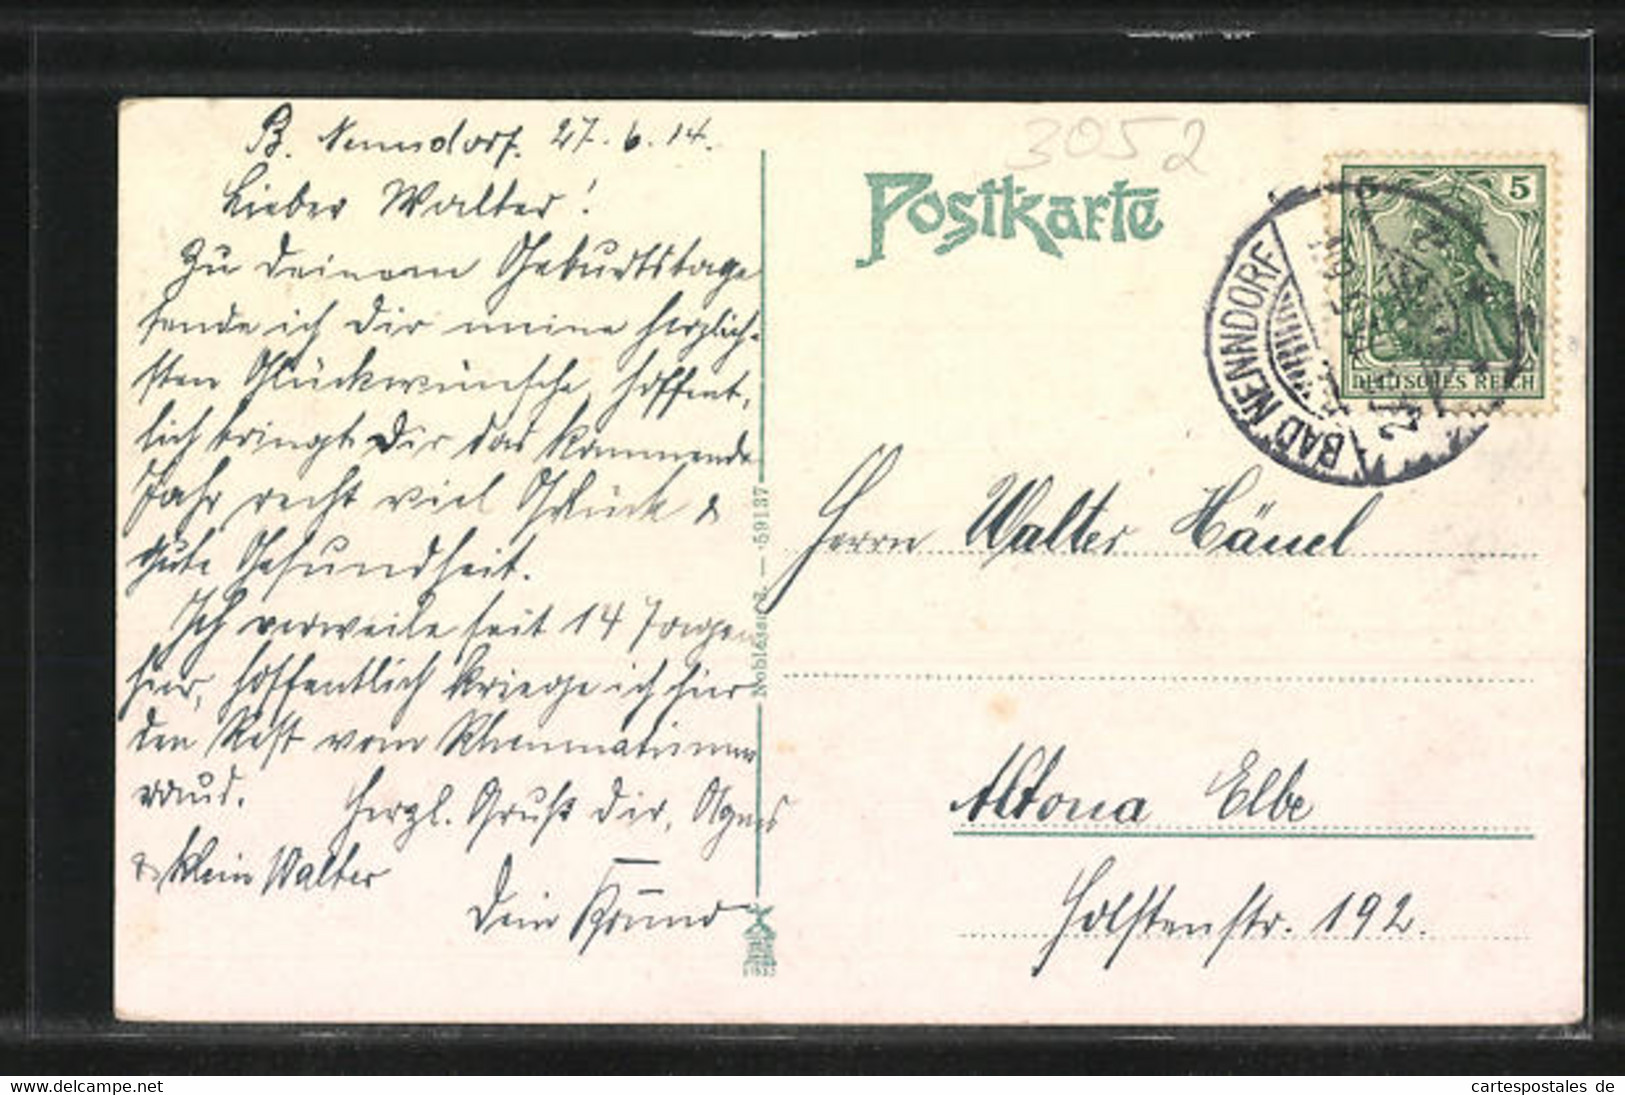 B. Nenndorf. 27. 6. 14.
Lieber Walter!
Zu deinem Geburtstage
sende ich dir meine herzlich-
sten Glückwünsche, hoffent-
lich bringt dir das kommende
Jahr recht viel Glück &
gute Gesundheit.
Ich verweile seit 14 Tagen
hier, hoffentlich kriege ich hier
den Rest vom Rheumatismus
raus.
Herzl. Gruß dir, Agnes
& klein Walter
Dein Freund
Nobless
59137
3052
Postkarte
5
DEUTSCHES REICH
BAD NENNDORF
Herrn Walter Hänel
Altona Elbe
Holstenstr. 192.
www.delcampe.net
cartespostales de